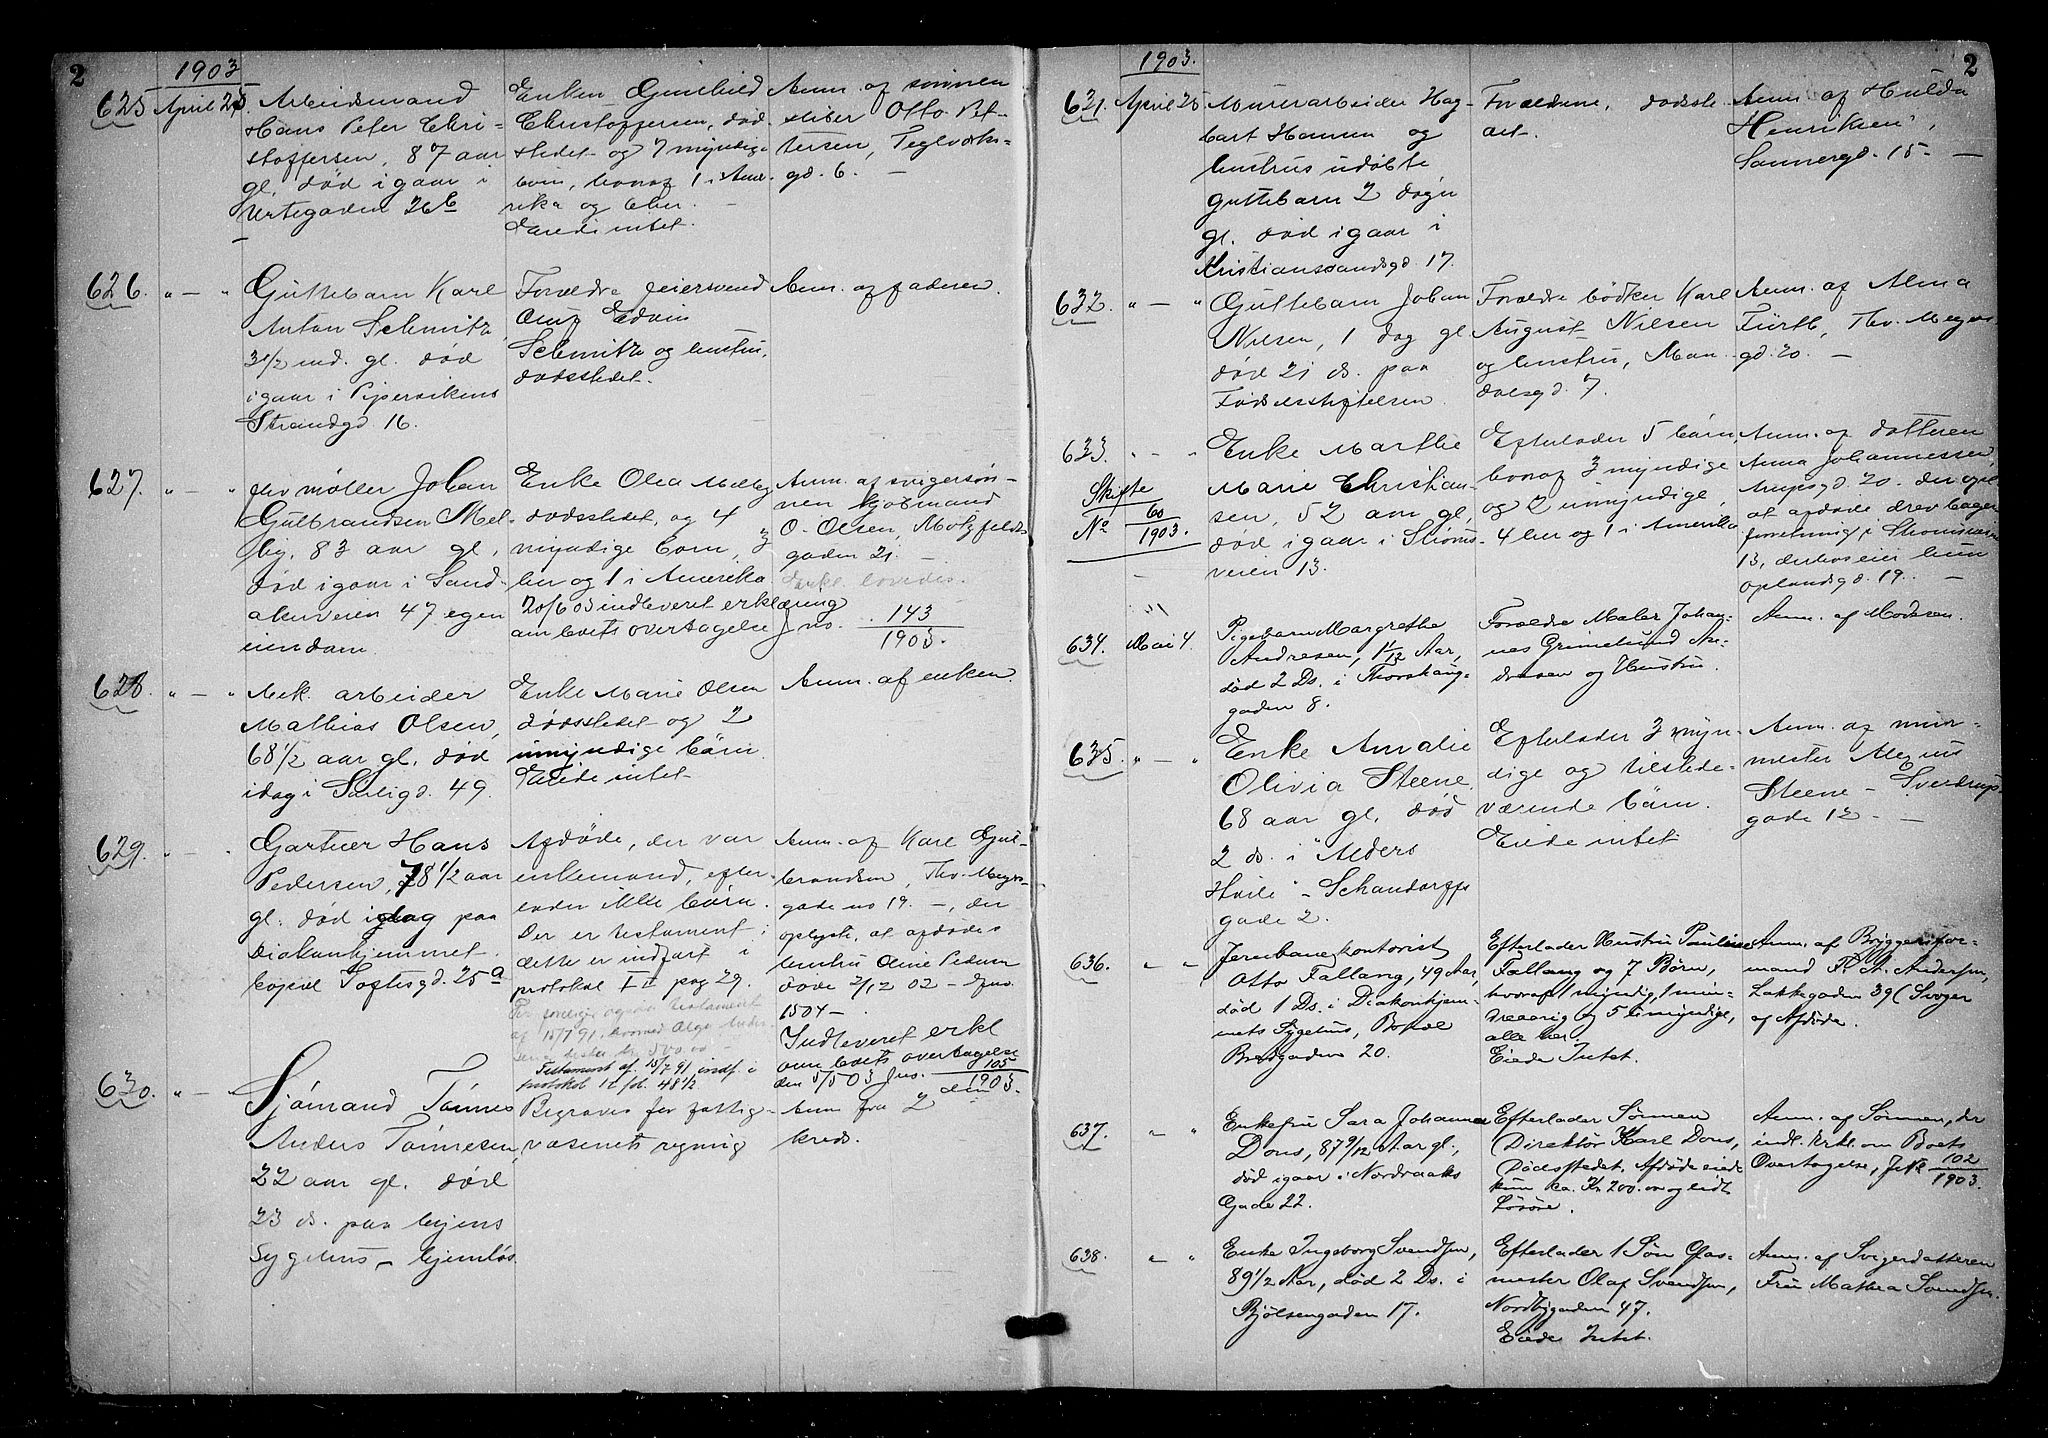 2
1903
625 April 25
Arbeidsmand
Hans Peter Chri-
stoffersen, 87 aar
gl. død igaar i
Urtegaden 26b
Enken Gunhild
Christoffersen, død-
stedet og 7 myndige
børn, hvoraf 1 i Ame-
rika og 6 her.
Eiede intet.
Anm. af sønnen
Otto Pet-
tersen, Teglverks-
gd. 6.
626. " — "
Guttebarn Karl
Anton Schmitz
3 1/2 md. gl. død
igaar i Pipervikens
Strandgd. 16.
Forældre feiersvend
Edvin
Schmitz og hustru,
dødsstedet.
Anm. af faderen.
627. " — "
møller Johan
Gulbrandsen Mel-
by, 83 aar gl,
død igaar i Sand-
akerveien 47 egen
eiendom.
Enke Olea Melby
dødsstedet, og 4
myndige børn, 3
her og 1 i Amerika
20/6 03 indleveret erklæring
om boets overtagelse Jno. 143
1903.
Anm. af svigersøn-
nen kjøbmand
O. Olsen, Motzfeldts
gaden 21.
Erkl. lovedes.
628. " — "
Mek. arbeider
Mathias Olsen,
68 1/2 aar gl. død
idag i Sarsgd. 49.
Enke Marie Olsen
dødsstedet og 2
umyndige børn
Eiede intet
Anm. af enken
629. " — "
Gartner Hans
Pedersen, 78 1/2 aar
gl. død idag paa
Diakonhjemmet
bopæl Toftesgd. 25a
Afdøde, der var
enkemand, efter-
lader ikke børn.
Der er testament i
dette er indført i
protokol II pag 29.
Testament af 15/7 91 indf. i
protokol 12 fol. 48 1/2
Anm. af Karl Gul-
brandsen, Thv. Meyers-
gade no 19. —, der
oplyste, at afdødes
hustru Oline Pedersen
døde 2/12 02 — Jno.
1504 —
Indleveret erkl
om boets overtagelse
den 5/5 03 Jno. 105
1903
630. " — "
Sjömand Tönnes
Anders Tönnesen,
22 aar gl. død
23 ds. paa byens
Sygehus — hjemløs.
Begraves for fattig-
væsenets regning
Anm fra 2 den
kreds.
1903.
2
631. April 25
Murerarbeider Hag-
bart Hansen og
hustrus udøbte
guttebarn 2 døgn
gl. død igaar i
Kristianssandsgd. 17.
Forældrene, dødsste-
det.
Anm. af Hulda
Henriksen,
Sannergd. 15. —
632. " — "
Guttebarn Johan
Nilsen, 1 dag gl
død 21 ds. paa
Fødselsstiftelsen.
Forældre bødker Karl
August Nilsen
og hustru, Man-
dalsgd. 7.
Anm. af Alma
Fürth, Thv. Meyers-
gd. 20. —
633. " — "
Skifte
No 60
1903.
Enke Marthe
Marie Christian-
sen, 52 aar gl,
død igaar i Strøms-
veien 13.
Efterlader 5 børn
hvoraf 3 myndige
og 2 umyndige,
4 her og 1 i Amerika
Anm. af datteren
Anna Johannessen,
Arupsgd. 20. der opl.
at afdøde drev bager
forretning i Strømsveien
13, derhos eier hun
oplandsgd. 19. —
634. Mai 4.
Pigebarn Margrethe
Andresen, 1 1/12 Aar,
død 2 Ds. i Thorshaug-
gaden 8.
Forældre Maler Johan-
nes Grimelund An-
dresen og Hustru.
Anm. af Moderen.
635. " — "
Enke Amalie
Olivia Steene
68 aar gl. død
2 ds. i "Alders
Hvile" - Schandorffs
gade 2.
Efterlader 3 myn-
dige og tilstede-
værende børn.
Eiede intet
Anm. af mur-
mester Magnus
Steene - Sverdrups
gade 12 —
636. " "
Jernbanekontorist
Otto Fallang, 49 Aar,
død 1 Ds. i Diakonhjem-
mets Sygehus, Bopæl
Bredgaden 20.
Efterlader Hustru Pauline
Fallang og 7 Børn,
hvoraf 1 myndig, 1 min-
dreaarig og 5 umyndige,
alle her.
Eiede Intet.
Anm. af Bryggeriefor-
mand Fr. A. Andersen,
Lakkegaden 39 (Svoger
af Afdøde.
637. " "
Enkefru Sara Johanna
Dons, 87 9/12 Aar gl.,
død igaar i Nordraaks
Gade 22.
Efterlader Sønnen
Direktør Karl Dons,
Dødsstedet. Afdøde eiede
kun ca. Kr 200.00 og lidt
Løsøre.
Anm. af Sønnen, der
indl. Erkl. om Boets
Overtagelse, J.No 102
1903.
638. " "
Enke Ingeborg Svendsen,
89 1/2 Aar, død 2 Ds. i
Bjølsengaden 17.
Efterlader 1 Søn Glas-
mester Olaf Svendsen,
Nordbygaden 47.
Eiede Intet.
Anm. af Svigerdatteren
Fru Mathea Svendsen.